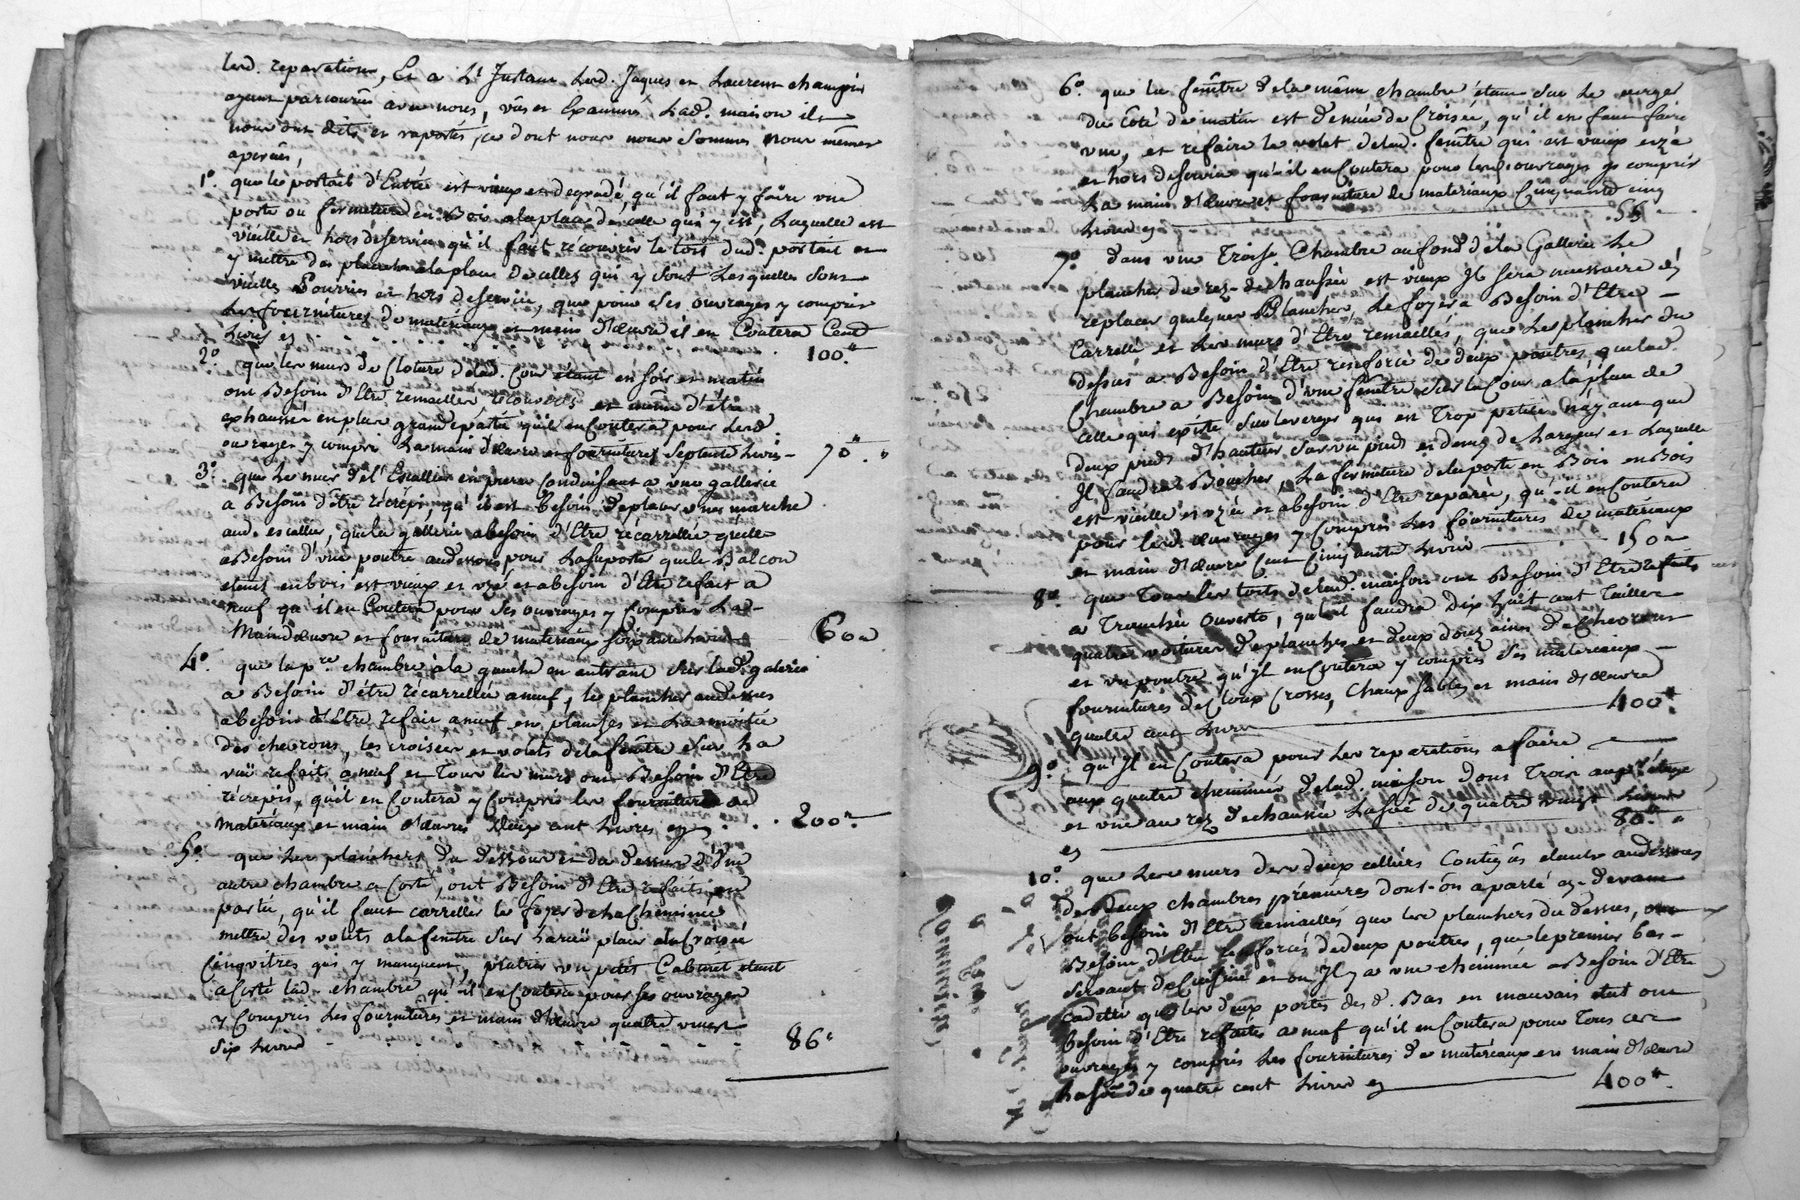 reparations, Et a L't Instant Lesd. Jaques et Laurent champin
ayant parcourus avec nous, vus et Examiné Lad. maison ils
nous ont dits et raportés, ce dont nous nous sommes nous mêmes
aperçus,
1°. que le portail d'Entrée est vieux et degradé, qu'il faut y faire une
porte ou fermeture en Bois a la place de celle qui y est, Laquelle est
vieille et hors de service qu'il faut récouvrir le toit dud. portail et
y mettre des planches a la place de celles qui y sont Lesquelles sont
vieilles Pourries et hors de service, que pour ses ouvrages y compris
Les fournitures de materiaux et main d'œuvre il en Coutera Cent
Livres cy . . . . . . 100."
2°. que les murs de Cloture de lad. Cour étant en soir et matin
ont Besoin d'Etre remaillés récouverts et même d'étre
exhaussé en plus grande partie qu'il en Coutera pour Lesd
ouvrages y compris La main d'œuvre et fournitures Septente Livres - 70." "
3°. que Le mur de l'Escallier en pierre Conduisant a une gallerie
a Besoin d'être récrépi, qu'il est besoin de placer une marche
aud. escallier, que la gallerie a besoin d'Etre récarrellée quelle
a Besoin d'une poutre au dessous pour La suporter que le Balcon
etant en bois est vieux et uzé et a besoin d'Etre refait a
neuf qu'il en Coutera pour ses ouvrages y Compris La
Main d'œuvre et fourniture de materiaux 600
4°. que la p.re chambre à la gauche en entrant sur lad. galerie
a Besoin d'être récarrellée a neuf, le plancher au dessus
a besoin d'Etre refait a neuf en planches et La moitié
des chevrons, les croisées et volets de la fenêtre sur La
ruë refaits a neuf et Tous les murs ont Besoin d'Etre
récrépis, qu'il en Coutera y Compris les fournitures de
Materiaux et main d'œuvre Deux cent Livres cy . . . 200"
5°. que Les planchers du dessous et du dessus d'une
autre chambre a Costé, ont Besoin d'Etre refaits en
partie, qu'il faut carreller le foyer de La Cheminée
mettre des volets a la fenêtre sur La ruë placer a la Croisée
Cinq vitres qui y manquent, platrer un petit Cabinet étant
a Costé lad. chambre qu'il en Coutera pour ses ouvrages
y Compris Les fournitures et main d'œuvre quatre vingt
Six Livres - - - - - 86"
6°. que la fenêtre de la même chambre étant sur Le verger
du Côté de matin est denuée de Croisée, qu'il en faut faire
une, et refaire le volet de lad. fenêtre qui est vieux et uzé
et hors de service qu'il en Coutera pour lesd. ouvrages y compris
La main d'œuvre et fourniture de materiaux Cinquante cinq
Livres cy 55 -
7°. dans une Trois.e Chambre au fond de la Gallerie Le
plancher du rez-de-chaussée est vieux Il sera necessaire d'y
replacer quelques Planches, Le foyer a Besoin d'Etre -
Carrellé et Les murs d'Etre remaillés, que Le plancher du
dessus a Besoin d'Etre renforcé de deux poutres, que lad.
Chambre a Besoin d'une fenêtre sur la Cour a la place de
celle qui existe sur le verger qui est Trop petite n'ayant que
deux pieds d'hauteur sur un pied et demy de Largeur et Laquelle
Il faudra Boucher, La fermeture de la porte en Bois
est vieille et uzée et a besoin d'Etre reparée, qu'il en Coutera
pour lesd. ouvrages y Compris Les fournitures de materiaux
et main d'œuvre Cent Cinquante Livres - - - 150"
8°. que Tous les toits de lad. maison ont Besoin d'Etre refaits
a Tranchée Ouverte, qu'il faudra Dix huit cent Tuilles
quatre voitures de planches et deux douzaines de Chevrons
et un poutre qu'Il en Coutera y compris ses materiaux -
fournitures de Cloux Crosses, Chaux sables et main d'œuvre
quatre cent Livres 400"
9°. qu'Il en Coutera pour Les reparations a faire
aux quatre cheminées de lad. maison dont Trois au p.er étage
et une au rez de chaussée La somme de quatre vingt Livres
cy 80" "
10°. que Les murs des deux celliers Contigus étants au dessous
des deux chambres premières dont on a parlé cy-devant
ont besoin d'Etre remaillés que les planchers du dessus, ont
Besoin d'Etre renforcés de deux poutres, que le premier bas -
servant de Cuisine et ou Il y a une cheminée a Besoin d'Etre
Cadetté que les deux portes des d. Bas en mauvais état ont
besoin d'Etre refaites a neuf qu'il en Coutera pour Tous ces
ouvrages y compris Les fournitures de materiaux et main d'œuvre
La somme de quatre cent Livres cy 400".